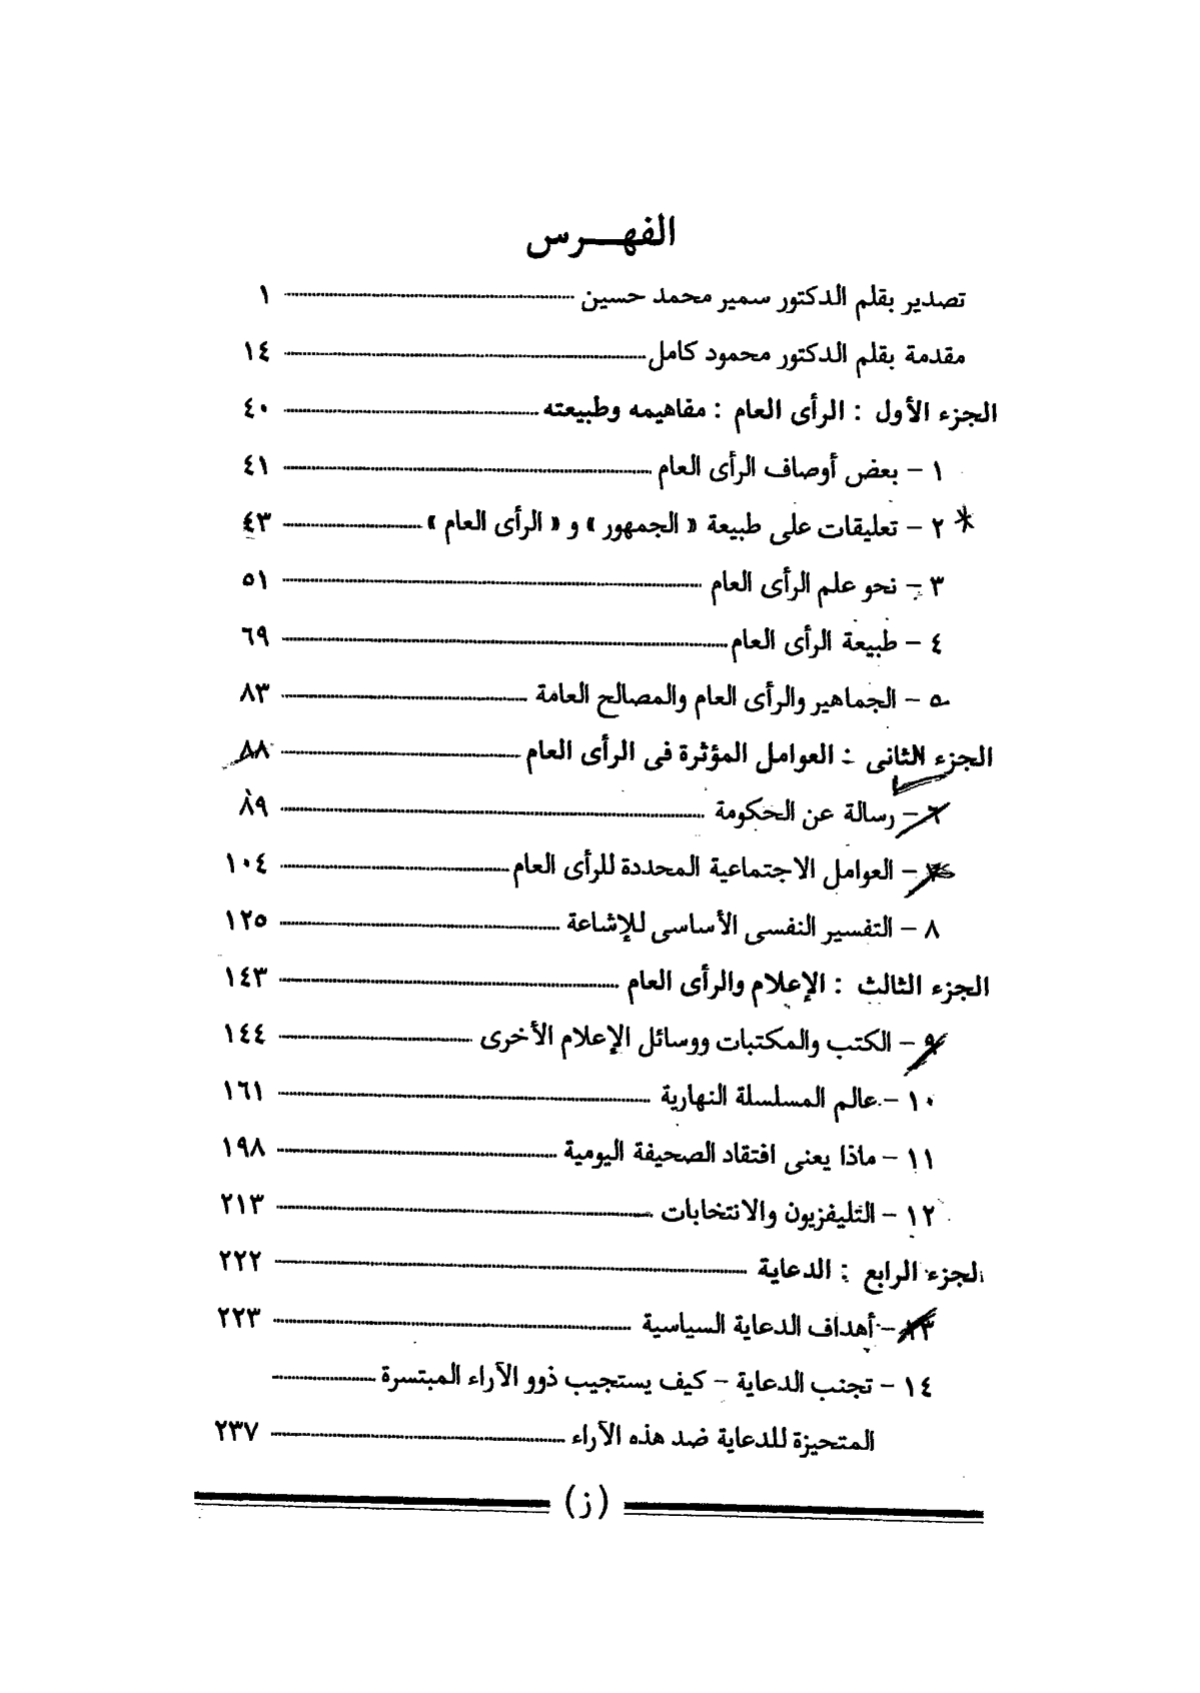 الفهـــرس
تصدير بقلم الدكتور سمير محمد حسين ١
مقدمة بقلم الدكتور محمود كامل ١٤
الجزء الأول : الرأى العام : مفاهيمه وطبيعته ٤٠
١ – بعض أوصاف الرأى العام ٤١
٢ – تعليقات على طبيعة « الجمهور » و « الرأى العام » ٤٣
٣ – نحو علم الرأى العام ٥١
٤ – طبيعة الرأى العام ٦٩
٥ – الجماهير والرأى العام والمصالح العامة ٨٣
الجزء الثانى : العوامل المؤثرة فى الرأى العام ٨٨
٦ – رسالة عن الحكومة ٨٩
٧ – العوامل الاجتماعية المحددة للرأى العام ١٠٤
٨ – التفسير النفسى الأساسى للإشاعة ١٢٥
الجزء الثالث : الإعلام والرأى العام ١٤٣
٩ – الكتب والمكتبات ووسائل الإعلام الأخرى ١٤٤
١٠ – عالم المسلسلة النهارية ١٦١
١١ – ماذا يعنى افتقاد الصحيفة اليومية ١٩٨
١٢ – التليفزيون والانتخابات ٢١٣
الجزء الرابع : الدعاية ٢٢٢
١٣ – أهداف الدعاية السياسية ٢٢٣
١٤ – تجنب الدعاية – كيف يستجيب ذوو الآراء المبتسرة
المتحيزة للدعاية ضد هذه الآراء ٢٣٧
(ز)